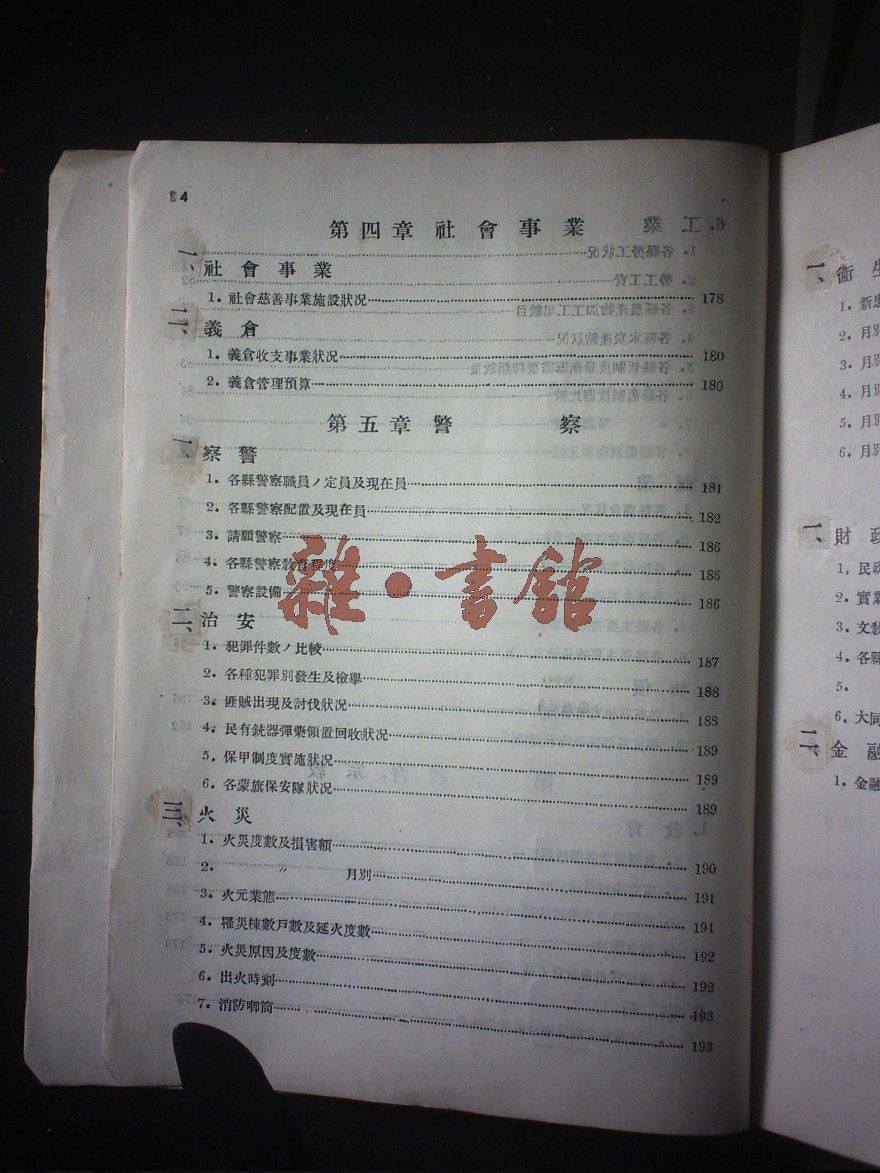 84
第四章 社會事業
一、社會事業
1. 社會慈善事業施設狀况 178
二、義倉
1. 義倉收支事業狀况 180
2. 義倉管理預算 180
第五章 警察
一、察警
1. 各縣警察職員ノ定員及現在員 181
2. 各縣警察配置及現在員 182
3. 請願警察 186
4. 各縣警察敎育程度 186
5. 警察設備 186
二、治安
1. 犯罪件數ノ比較 187
2. 各種犯罪別發生及檢舉 188
3. 匪賊出現及討伐狀况 188
4. 民有銃器彈藥領置回收狀况 189
5. 保甲制度實施狀况 189
6. 各蒙旗保安隊狀况 189
三、火災
1. 火災度數及損害額 190
2. 〃 月別 191
3. 火元業態 191
4. 罹災棟數戶數及延火度數 192
5. 火災原因及度數 192
6. 出火時刻 193
7. 消防喞筒 193
雜·書館
一、衞生
1. 新
2. 月別
3. 月別
4. 月別
5. 月別
6. 月別
一、財政
1. 民
2. 實業
3. 文敎
4. 各縣
5.
6. 大同
二、金融
1. 金融